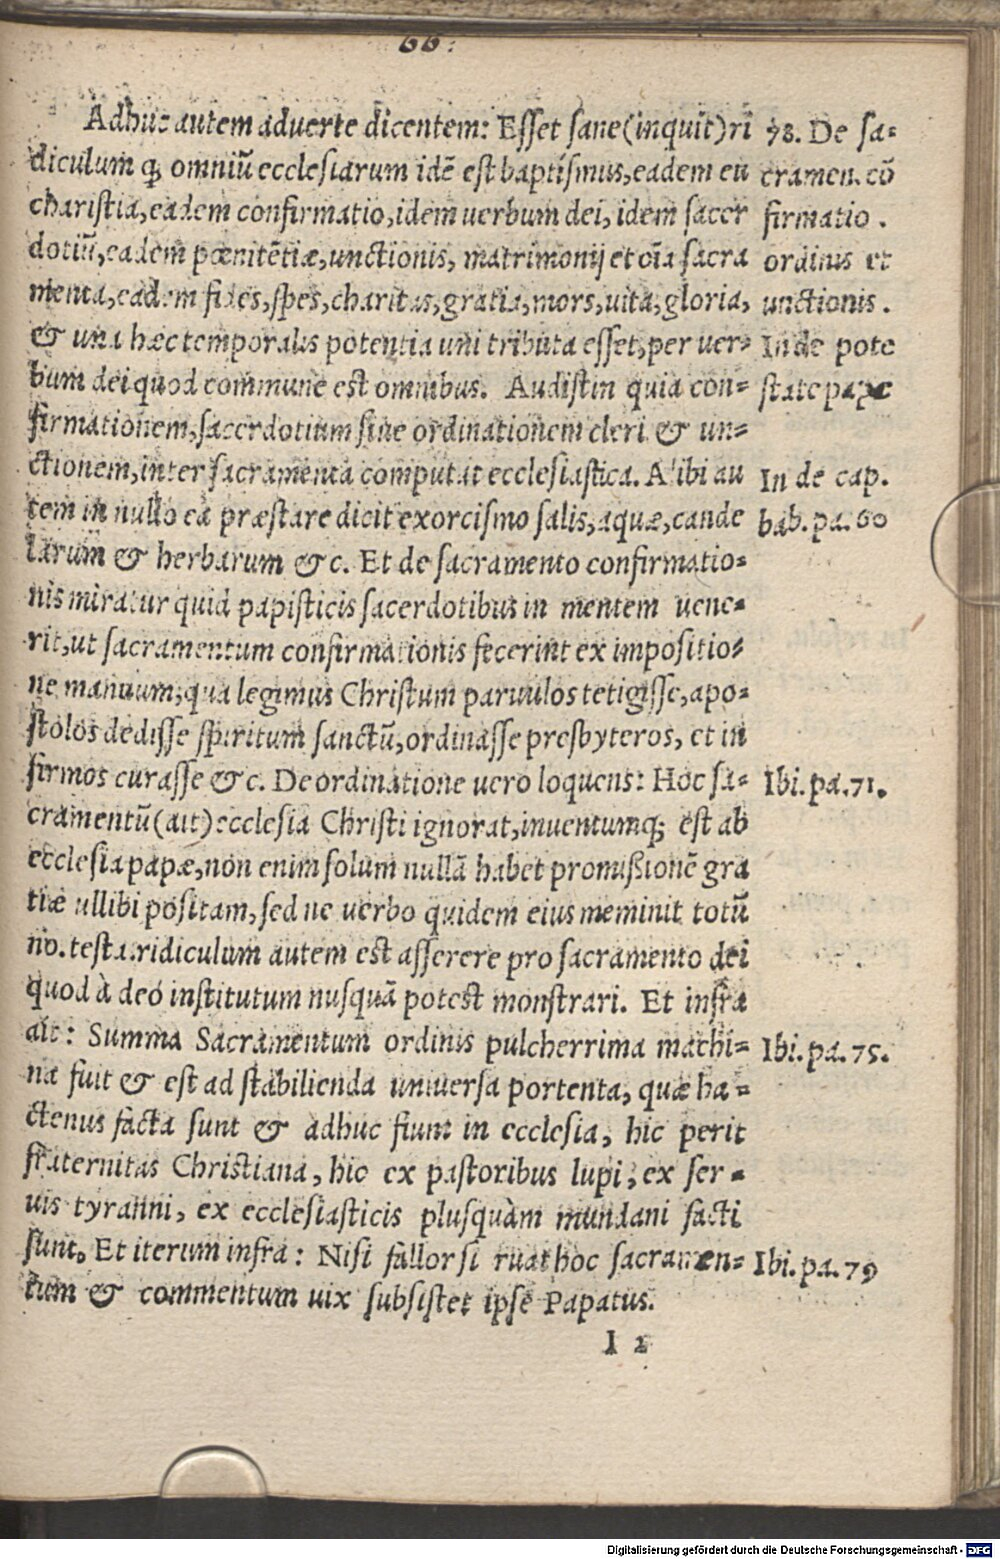 66.
Adhuc autem aduerte dicentem: Esset sane (inquit) ri
diculum qꝫ omniũ ecclesiarum idẽ est baptismus, eadem eu
charistia, eadem confirmatio, idem uerbum dei, idem sacer
dotiũ, eadem pœnitẽtiæ, unctionis, matrimonij et oĩa sacra
menta, eadem fides, spes, charitas, gratia, mors, uita, gloria,
& una hæc temporalis potentia uni tributa esset, per uer=
bum dei quod commune est omnibus. Audistin quia con=
firmationem, sacerdotium siue ordinationem cleri & un=
ctionem, inter sacramenta computat ecclesiastica. Alibi au
tem in nullo ea præstare dicit exorcismo salis, aquæ, cande
larum & herbarum &c. Et de sacramento confirmatio=
nis miratur quid papisticis sacerdotibus in mentem uene=
rit, ut sacramentum confirmationis fecerint ex impositio=
ne manuum, qua legimus Christum paruulos tetigisse, apo=
stolos dedisse spiritum sanctũ, ordinasse presbyteros, et in
firmos curasse &c. De ordinatione uero loquens: Hoc sa=
cramentũ (ait) ecclesia Christi ignorat, inuentumqꝫ est ab
ecclesia papæ, non enim solum nullã habet promißionẽ gra
tiæ ullibi positam, sed ne uerbo quidem eius meminit totũ
no. testa. ridiculum autem est asserere pro sacramento dei
quod à deo institutum nusquã potest monstrari. Et infra
ait: Summa Sacramentum ordinis pulcherrima machi=
na fuit & est ad stabilienda uniuersa portenta, quæ ha=
ctenus facta sunt & adhuc fiunt in ecclesia, hic perit
fraternitas Christiana, hic ex pastoribus lupi, ex ser=
uis tyranni, ex ecclesiasticis plusquàm mundani facti
sunt. Et iterum infra: Nisi fallor si ruat hoc sacramen=
tum & commentum uix subsistet ipse Papatus.
I 2
78. De sa=
cramen. cõ
firmatio.
ordinis et
unctionis.
In de pote
state papæ
In de cap.
bab. pa. 60
Ibi. pa. 71.
Ibi. pa. 75.
Ibi. pa. 79
Digitalisierung gefördert durch die Deutsche Forschungsgemeinschaft - DFG